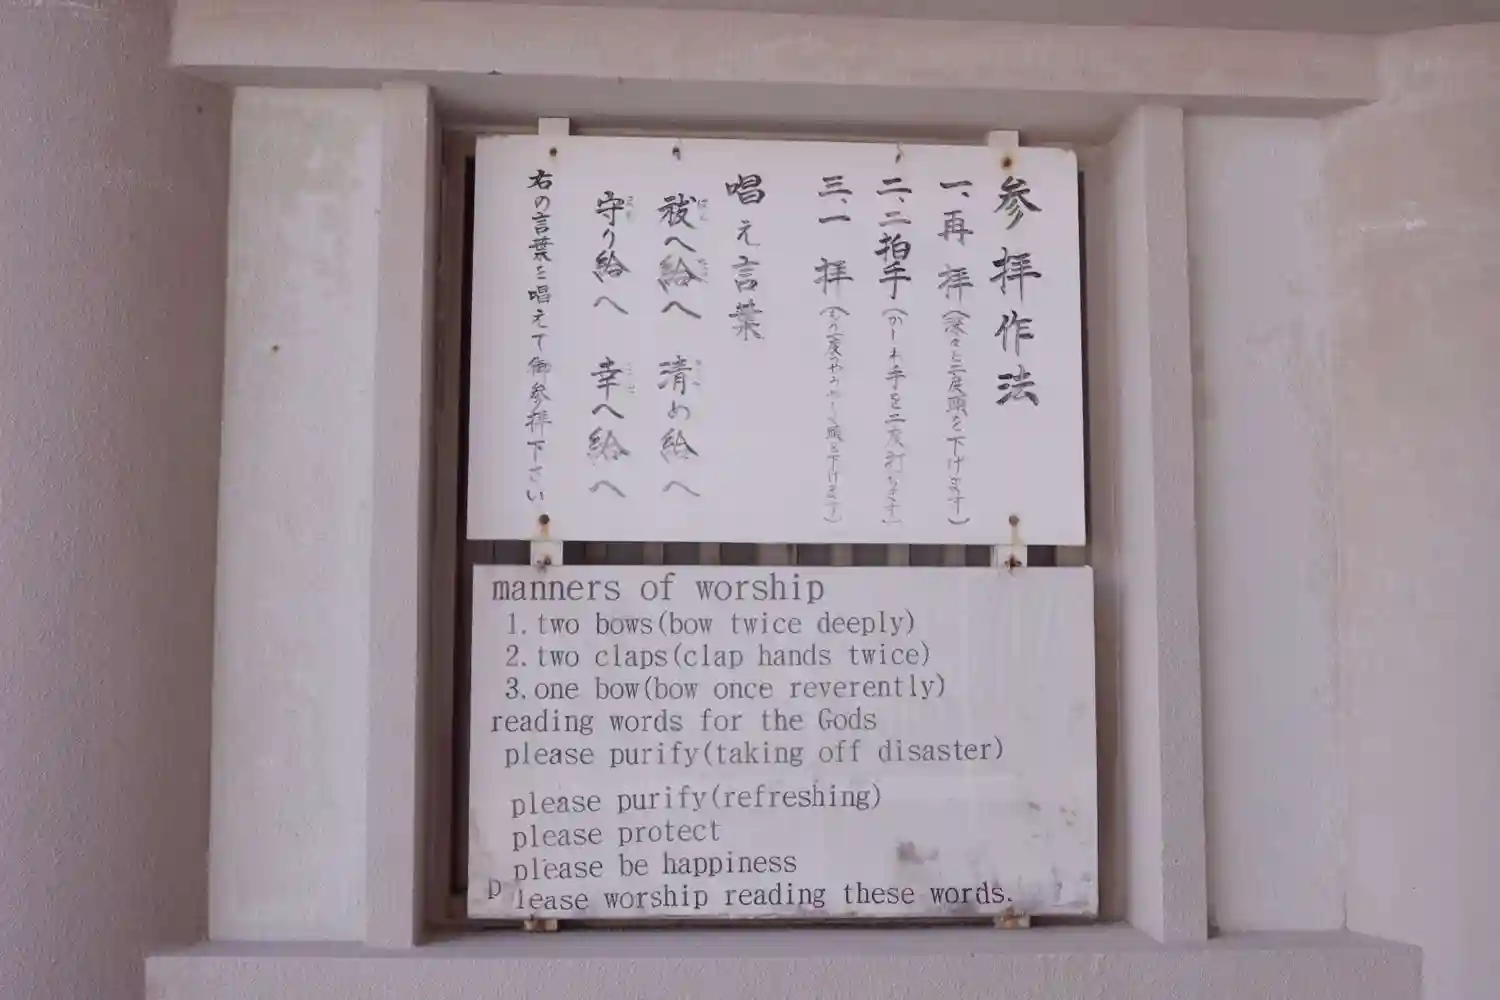 参拝作法
一、再拝(深々と二度頭を下げます)
二、二拍手(かしわ手を二度打ちます)
三、一拝(もう一度つつましく頭を下げます)
唱え言葉
祓へ給へ 清め給へ
守り給へ 幸へ給へ
右の言葉を唱えて御参拝下さい
manners of worship
1. two bows(bow twice deeply)
2. two claps(clap hands twice)
3. one bow(bow once reverently)
reading words for the Gods
please purify(taking off disaster)
please purify(refreshing)
please protect
please be happiness
please worship reading these words.